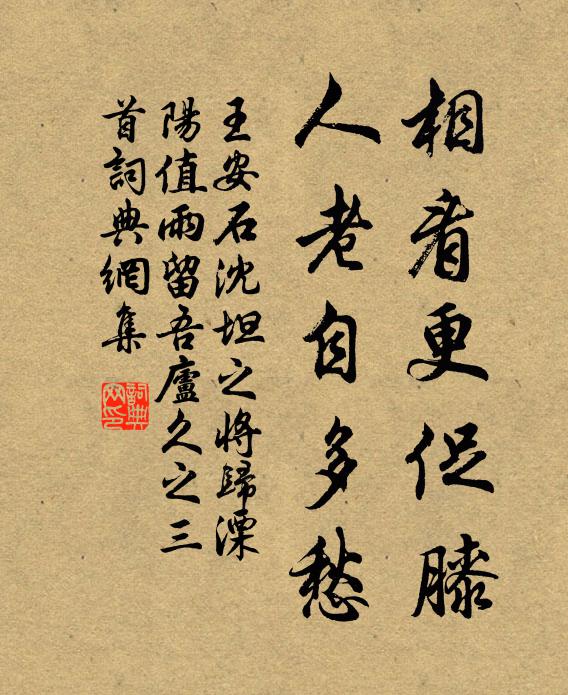 相看更促膝
人老自多愁
王安石沈坦之將歸溧
陽值雨留吾廬久之三
首詞典網集
詞典網印